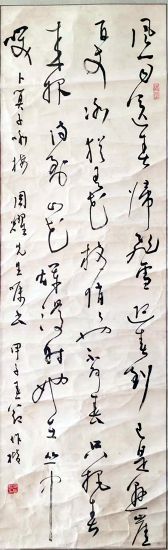 風雨送春歸飛雪迎春到已是懸崖
百丈冰猶有花枝俏俏也不争春只把春
来報待到山花爛漫时她在丛中
笑 卜算子咏梅 周耀先生嘱書 甲子